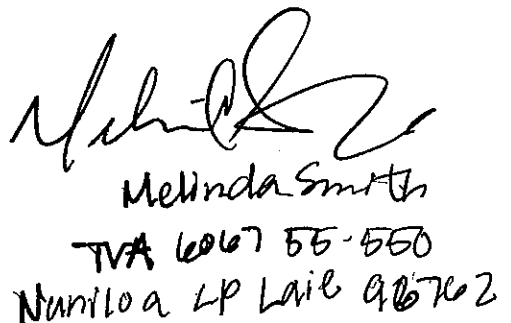 Melinda Smith
TVA 6067 55-550
Naniloa LP Laie 96762